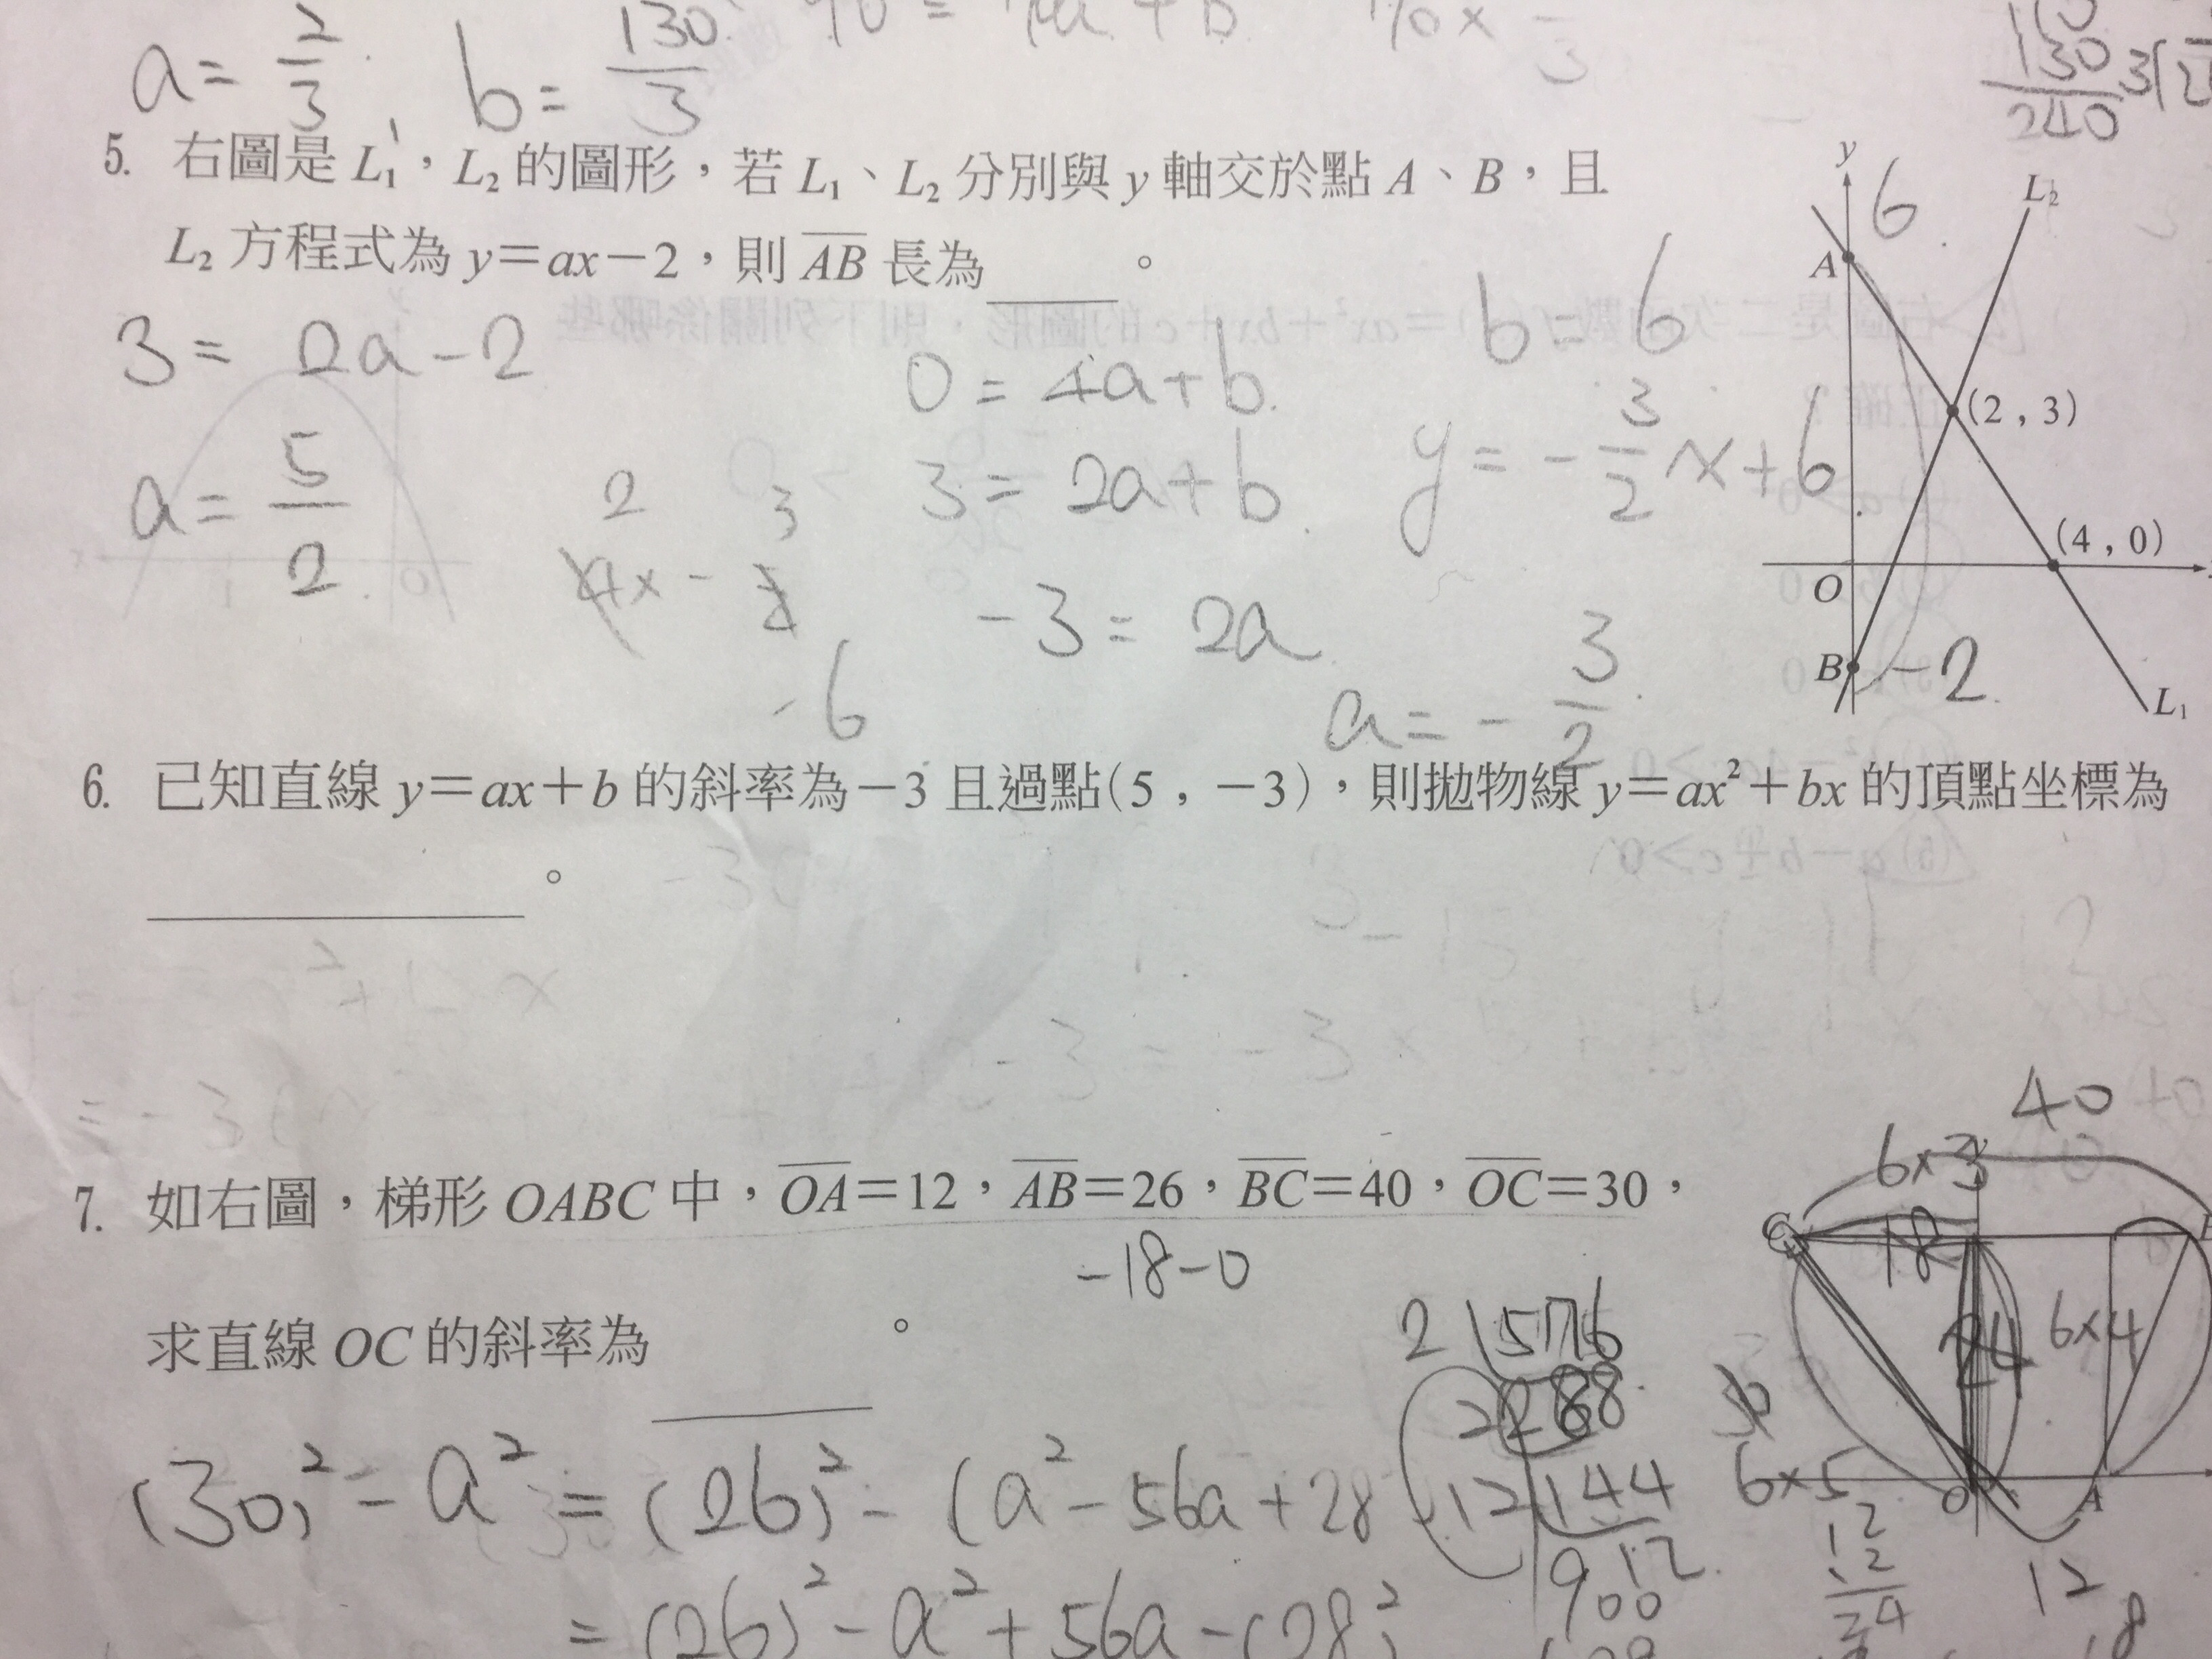 a = 2/3 b = 130/3
130
240
5. 右圖是 L₁，L₂ 的圖形，若 L₁、L₂ 分別與 y 軸交於點 A、B，且
L₂ 方程式為 y＝ax－2，則 AB 長為____。
3 = 2a - 2
a = 5/2
0 = 4a + b
3 = 2a + b
-3 = 2a
a = - 3/2
b = 6
y = - 3/2 x + 6
-6
y
6
L₂
A
(2 , 3)
(4 , 0)
O
B
-2
L₁
6. 已知直線 y＝ax＋b 的斜率為－3 且過點(5 , －3)，則拋物線 y＝ax²＋bx 的頂點坐標為
____。
7. 如右圖，梯形 OABC 中，OA＝12，AB＝26，BC＝40，OC＝30，
-18-0
求直線 OC 的斜率為____。
(30)² - a² = (26)² - (a² - 56a + 28
= (26)² - a² + 56a - (28)²
2 576
2 288
12 144
12
900
40
6×3
C
18
24
6×4
6×5
O
A
12
12
24
12
8